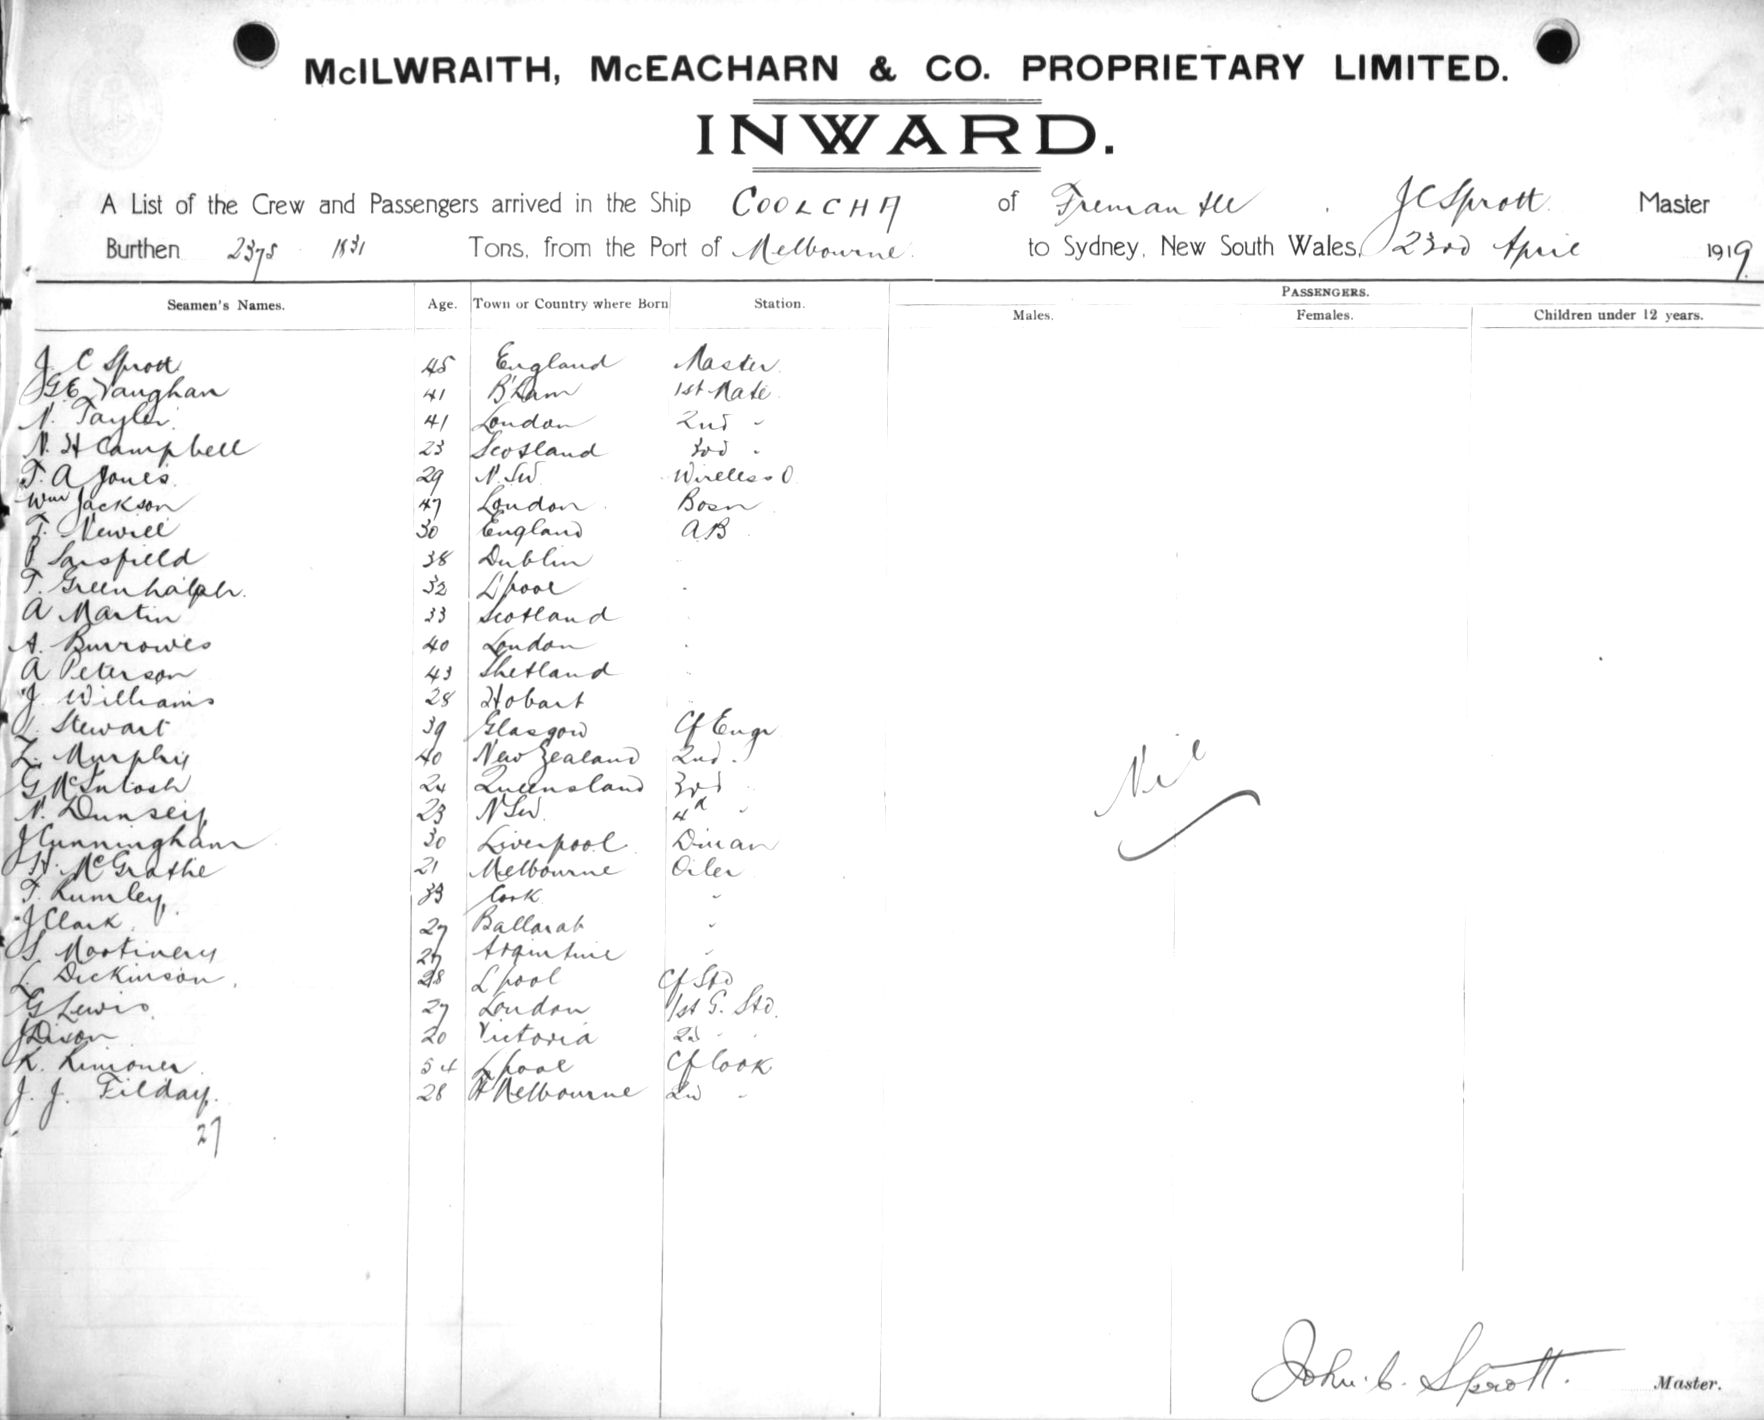 McILWRAITH, McEACHARN & CO. PROPRIETARY LIMITED.
INWARD.
A List of the Crew and Passengers arrived in the Ship COOLCHA of Fremantle J C Sprott Master
Burthen 2375 1831 Tons, from the Port of Melbourne to Sydney, New South Wales, 23rd April 1919
PASSENGERS.
Seamen's Names. Age. Town or Country where Born Station. Males. Females. Children under 12 years.
J. C Sprott 45 England Master
G E Vaughan 41 B'ham 1st Mate
N. Tayler 41 London 2nd "
N. H Campbell 23 Scotland 3rd "
T. A Jones 29 N. SW Wireless O
Wm Jackson 47 London Bosn
T. Newill 30 England AB
P Sarsfield 38 Dublin
T. Greenhalgh. 32 L'pool "
A Martin 33 Scotland "
A. Burrowes 40 London "
A Peterson 43 Shetland "
J Williams 28 Hobart
Stewart 39 Glasgow Cf Engr
Murphy 40 New Zealand 2nd "
G McIntosh 24 Queensland 3rd "
N. Dunsey 23 N SW. 4th "
J Cunningham 30 Liverpool Dman
H. McGrathe 21 Melbourne Oiler
T. Lumley 33 Cork "
J Clark 27 Ballarat "
S. 27 Argintine "
L. Dickinson 28 L'pool Cf Std
G Lewis 27 London 1st G. Std.
J Dixon 20 Victoria 2d " "
K. 54 L'pool Cf Cook
J. J. Filday. 28 Melbourne 2nd "
27
Nil
John. C. Sprott. Master.